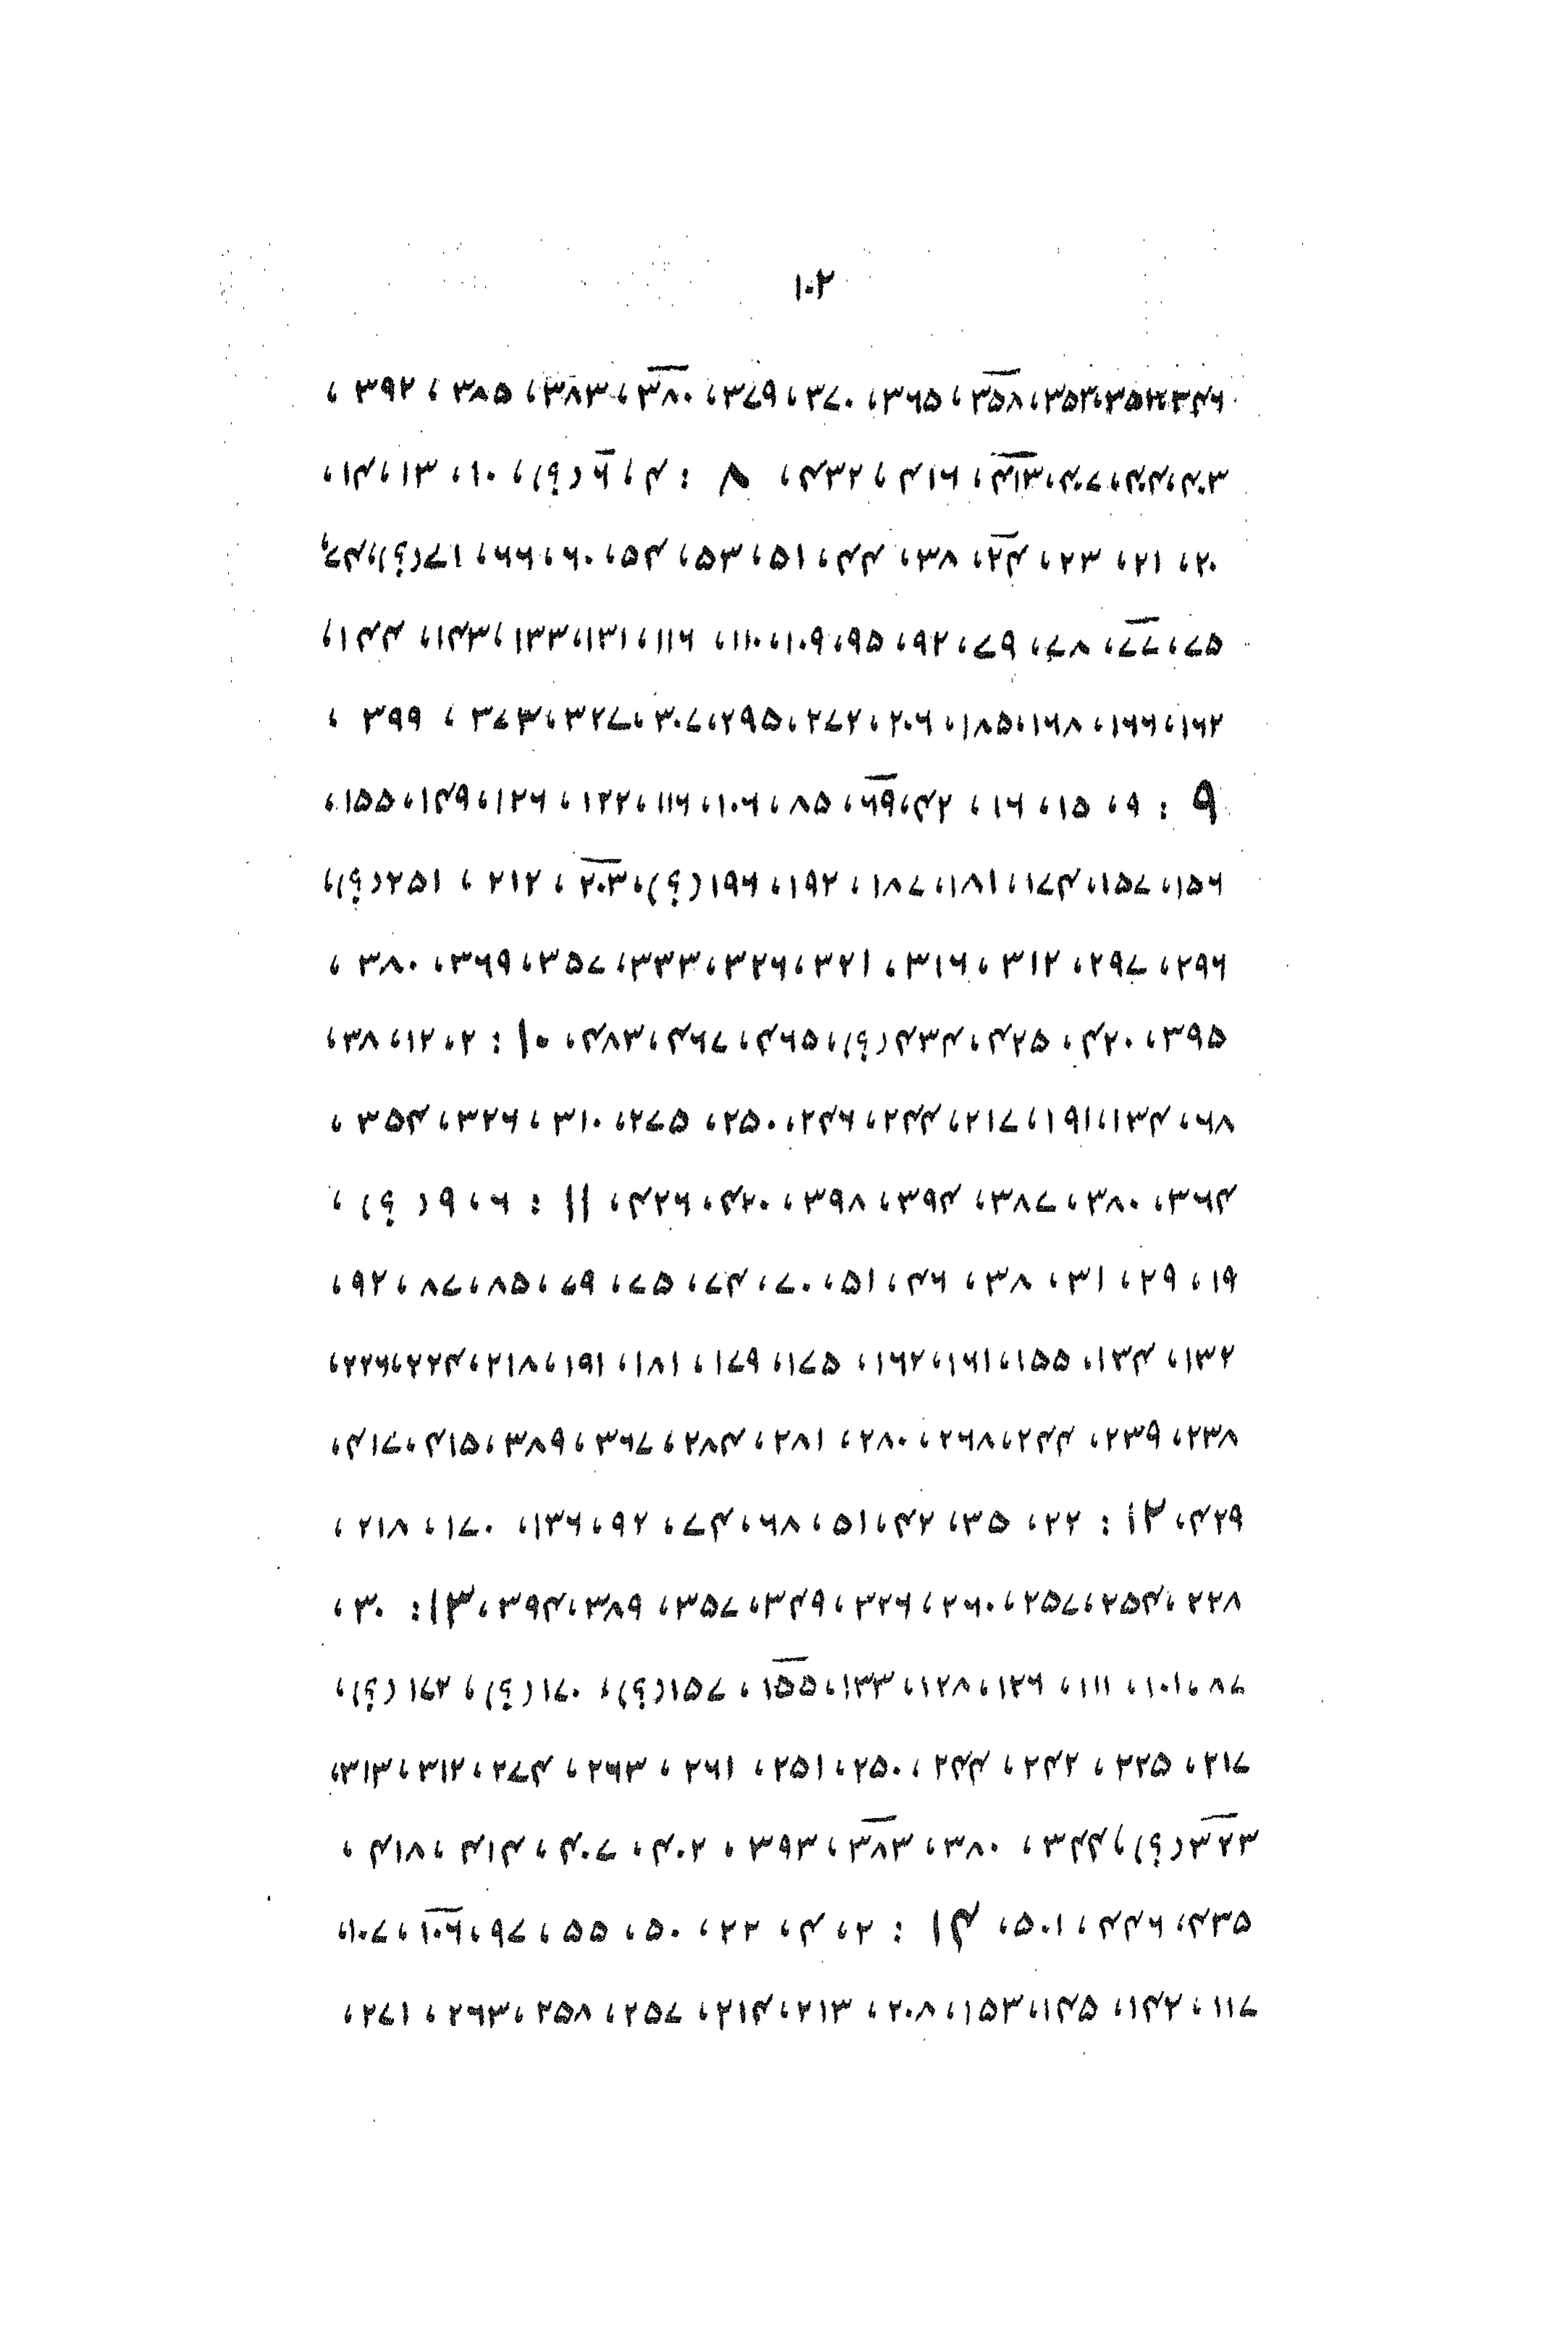 ۱۰۲
۳۴۶، ۳۵۲، ۳۵۳، ۳۵۸، ۳۶۵، ۳۷۰، ۳۷۹، ۳۸۰، ۳۸۳، ۳۸۵، ۳۹۲،
۴۰۳، ۴۰۴، ۴۰۷، ۴۱۳، ۴۱۶، ۴۳۲، ۸ : ۴، ۶(؟)، ۱۰، ۱۳، ۱۴،
۲۰، ۲۱، ۲۳، ۲۴، ۳۸، ۴۴، ۵۱، ۵۳، ۵۴، ۶۰، ۶۶، ۷۱(؟)، ۷۴،
۷۵، ۷۷، ۷۸، ۷۹، ۹۲، ۹۵، ۱۰۹، ۱۱۰، ۱۱۶، ۱۳۱، ۱۳۳، ۱۴۳، ۱۴۴،
۱۶۲، ۱۶۶، ۱۶۸، ۱۸۵، ۲۰۶، ۲۷۲، ۲۹۵، ۳۰۷، ۳۲۷، ۳۷۳، ۳۹۹،
۹ : ۹، ۱۵، ۱۶، ۴۲، ۶۹، ۸۵، ۱۰۶، ۱۱۶، ۱۲۲، ۱۲۶، ۱۴۹، ۱۵۵،
۱۵۶، ۱۵۷، ۱۷۴، ۱۸۱، ۱۸۷، ۱۹۲، ۱۹۶(؟)، ۲۰۳، ۲۱۲، ۲۵۱(؟)،
۲۹۶، ۲۹۷، ۳۱۲، ۳۱۶، ۳۲۱، ۳۲۶، ۳۳۳، ۳۵۷، ۳۶۹، ۳۸۰،
۳۹۵، ۴۲۰، ۴۲۵، ۴۳۴(؟)، ۴۶۵، ۴۶۷، ۴۸۳، ۱۰ : ۲، ۱۲، ۳۸،
۶۸، ۱۳۴، ۱۹۱، ۲۱۷، ۲۴۴، ۲۴۶، ۲۵۰، ۲۷۵، ۳۱۰، ۳۲۶، ۳۵۴،
۳۶۴، ۳۸۰، ۳۸۷، ۳۹۴، ۳۹۸، ۴۲۰، ۴۲۶، ۱۱ : ۶، ۹(؟)،
۱۹، ۲۹، ۳۱، ۳۸، ۴۶، ۵۱، ۷۰، ۷۴، ۷۵، ۷۹، ۸۵، ۸۷، ۹۲،
۱۳۲، ۱۳۴، ۱۵۵، ۱۶۱، ۱۶۲، ۱۷۵، ۱۷۹، ۱۸۱، ۱۹۱، ۲۱۸، ۲۲۴، ۲۲۶،
۲۳۸، ۲۳۹، ۲۴۴، ۲۶۸، ۲۸۰، ۲۸۱، ۲۸۴، ۳۶۷، ۳۸۹، ۴۱۵، ۴۱۷،
۴۲۹، ۱۲ : ۲۲، ۳۵، ۴۲، ۵۱، ۶۸، ۷۴، ۹۲، ۱۳۶، ۱۷۰، ۲۱۸،
۲۲۸، ۲۵۴، ۲۵۷، ۲۶۰، ۳۲۶، ۳۴۹، ۳۵۷، ۳۸۹، ۳۹۴، ۱۳: ۳۰،
۸۷، ۱۰۱، ۱۱۱، ۱۲۶، ۱۲۸، ۱۳۳، ۱۵۵، ۱۵۷(؟)، ۱۷۰(؟)، ۱۷۲(؟)،
۲۱۷، ۲۲۵، ۲۴۲، ۲۴۴، ۲۵۰، ۲۵۱، ۲۶۱، ۲۶۳، ۲۷۴، ۳۱۲، ۳۱۳،
۳۲۳(؟)، ۳۴۴، ۳۸۰، ۳۸۳، ۳۹۳، ۴۰۲، ۴۰۷، ۴۱۴، ۴۱۸،
۴۳۵، ۴۴۶، ۵۰۱، ۱۴ : ۲، ۴، ۲۲، ۵۰، ۵۵، ۹۷، ۱۰۶، ۱۰۷،
۱۱۷، ۱۴۲، ۱۴۵، ۱۵۳، ۲۰۸، ۲۱۳، ۲۱۴، ۲۵۷، ۲۵۸، ۲۶۳، ۲۷۱،